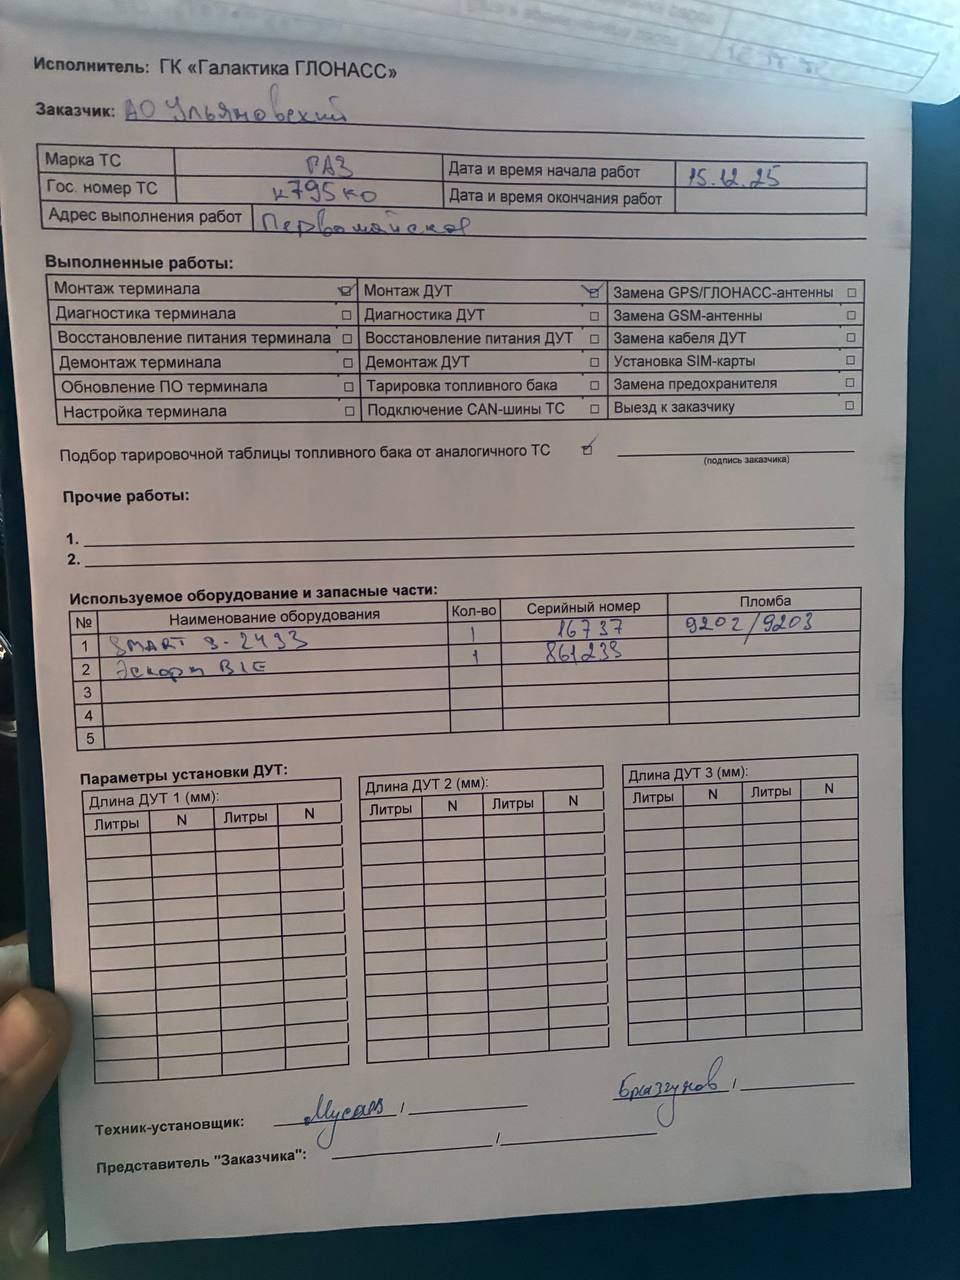 Исполнитель: ГК «Галактика ГЛОНАСС»
Заказчик: АО Ульяновский
Марка ТС ГАЗ Дата и время начала работ 15.12.25
Гос. номер ТС к795ко Дата и время окончания работ
Адрес выполнения работ Первомайское
Выполненные работы:
Монтаж терминала ☑ Монтаж ДУТ ☑ Замена GPS/ГЛОНАСС-антенны □
Диагностика терминала □ Диагностика ДУТ □ Замена GSM-антенны □
Восстановление питания терминала □ Восстановление питания ДУТ □ Замена кабеля ДУТ □
Демонтаж терминала □ Демонтаж ДУТ □ Установка SIM-карты □
Обновление ПО терминала □ Тарировка топливного бака □ Замена предохранителя □
Настройка терминала □ Подключение CAN-шины ТС □ Выезд к заказчику □
Подбор тарировочной таблицы топливного бака от аналогичного ТС ☑
(подпись заказчика)
Прочие работы:
1.
2.
Используемое оборудование и запасные части:
№ Наименование оборудования Кол-во Серийный номер Пломба
1 SMART S-2433 1 16737 9202/9203
2 Эскорт BLE 1 861239
3
4
5
Параметры установки ДУТ:
Длина ДУТ 1 (мм): Длина ДУТ 2 (мм): Длина ДУТ 3 (мм):
Литры N Литры N Литры N Литры N Литры N Литры N
Брызгунов /
Техник-установщик: Мусаев /
Представитель "Заказчика": /